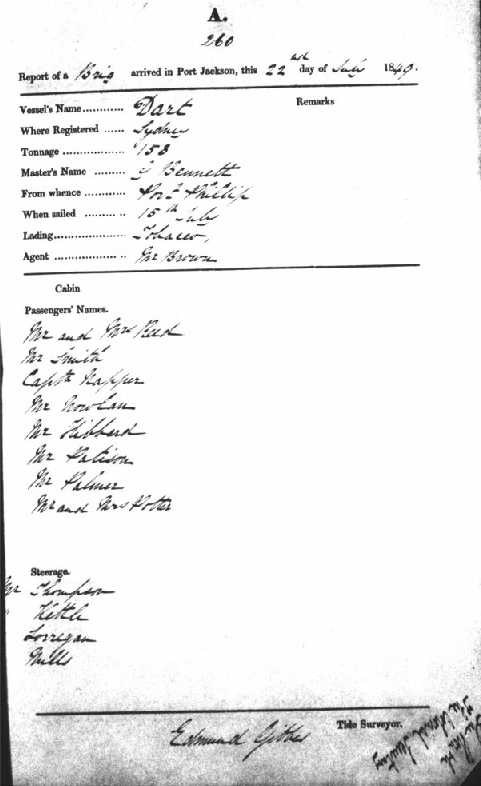 A.
260
Report of a Brig arrived in Port Jackson, this 22nd day of July 1840.
Vessel's Name ............ Dart
Remarks
Where Registered ...... Sydney
Tonnage .................. 153
Master's Name ......... Bennett
From whence ............ Port Phillip
When sailed .......... 15th July
Lading.................... Tobacco,
Agent .................... Mr Brown
Cabin
Passengers' Names.
Mr and Mrs Reed
Mr Smith
Captn Napper
Mr Nowlan
Mr Hibberd
Mr Patison
Mr Palmer
Mr and Mrs Potter
Steerage.
Mr Thompson
" Kettle
Lorregan
Mills
Tide Surveyor.
Edmund Gibbes